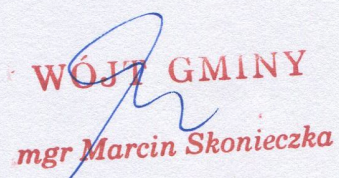 WÓJT GMINY
mgr Marcin Skonieczka